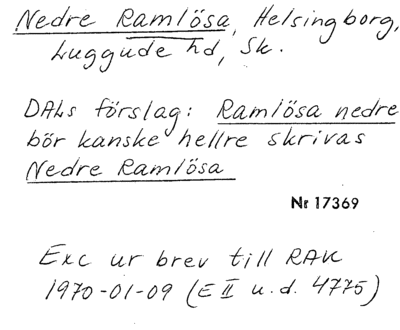 Nedre Ramlösa, Helsingborg,
Luggude hd, Sk.
DALs förslag: Ramlösa nedre
bör kanske hellre skrivas
Nedre Ramlösa
Nr 17369
Exc ur brev till RAK
1970-01-09 (E II u.d. 4775)